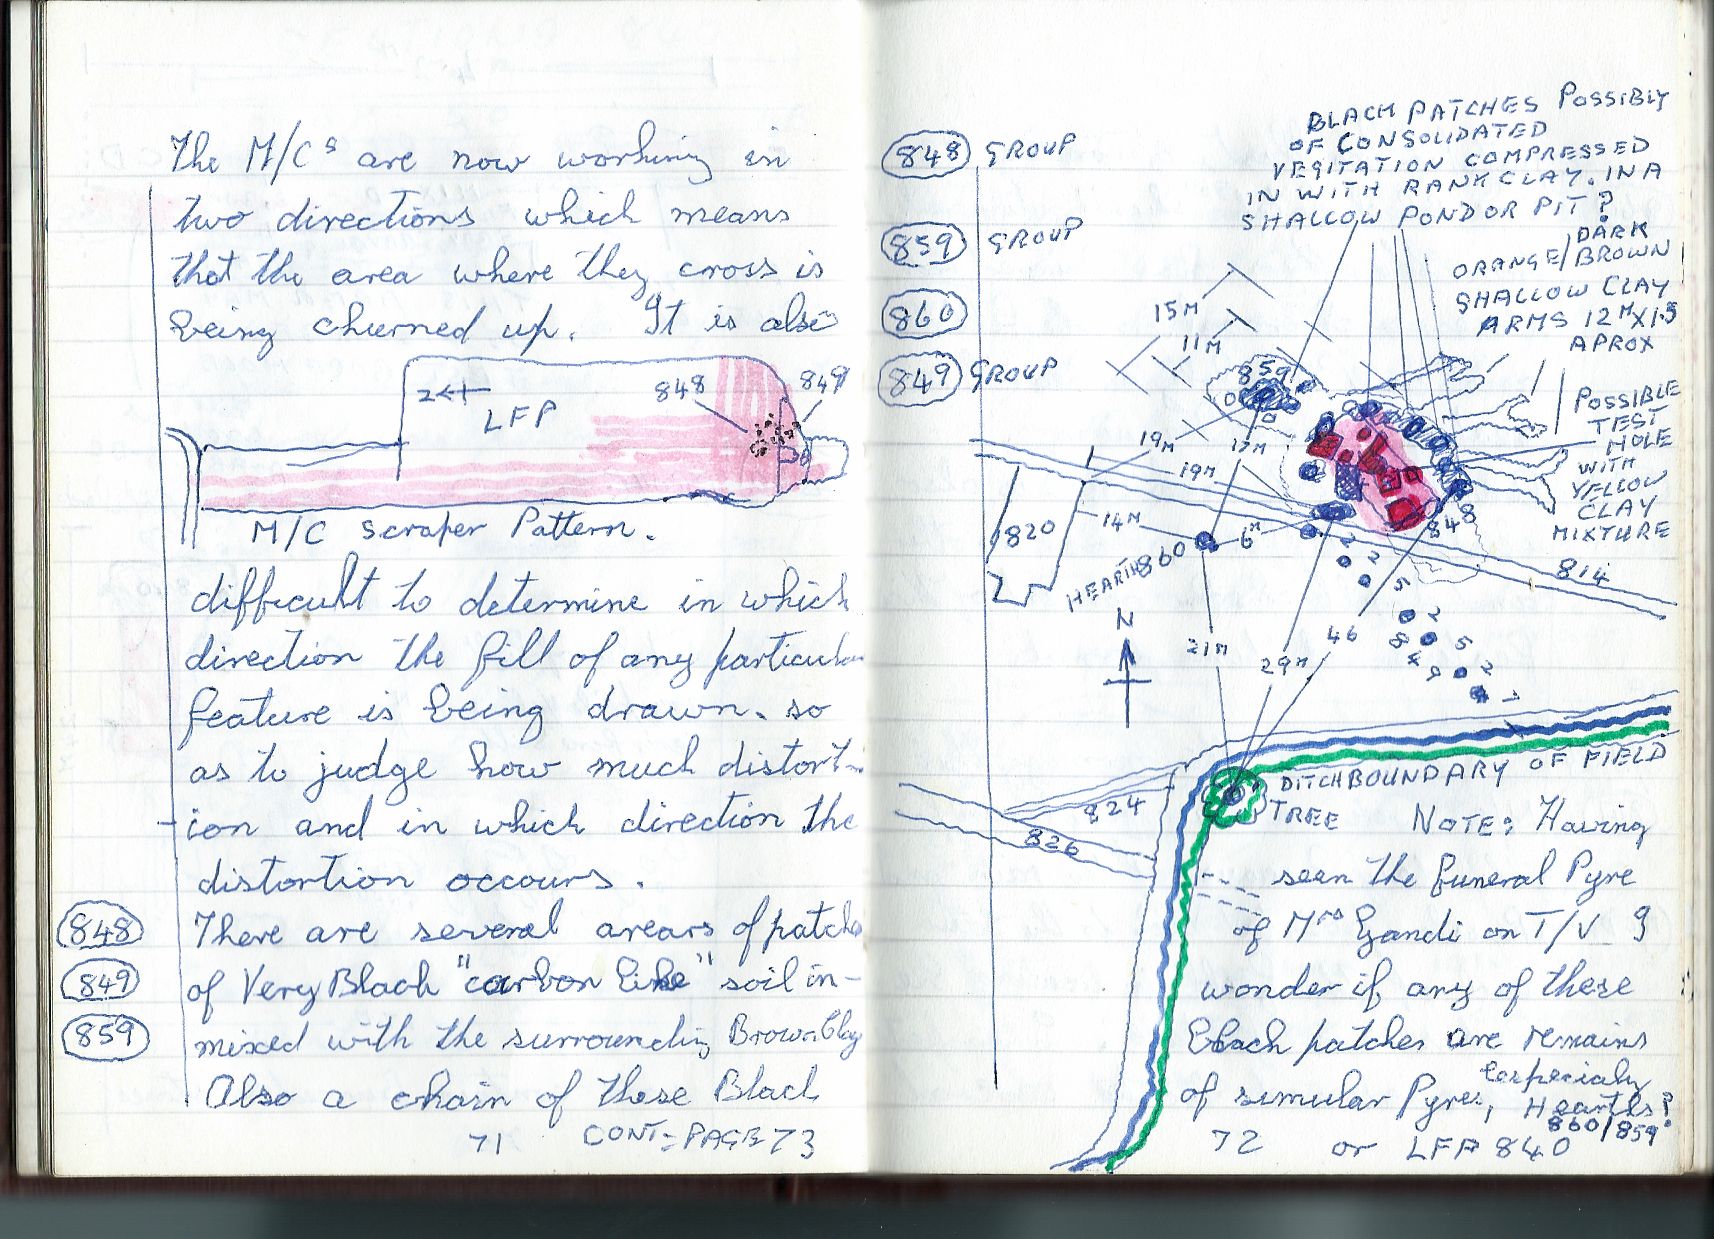 The M/Cs are now working in
two directions which means
that the area where they cross is
being churned up. It is also
848 849
LFP
M/C Scraper Pattern.
difficult to determine in which
direction the fill of any particular
feature is being drawn. so
as to judge how much distort-
ion and in which direction the
distortion occours.
848 There are several arears of patches
849 of Very Black "carbon like" soil in-
859 mixed with the surrounding Brown Clay
Also a chain of these Black
71 CONT:- PAGE 73
848 GROUP
859 GROUP
860
849 GROUP
BLACK PATCHES POSSIBLY
OF CONSOLIDATED
VEGITATION COMPRESSED
IN WITH RANK CLAY. IN A
SHALLOW POND OR PIT?
DARK
ORANGE/BROWN
SHALLOW CLAY
ARMS 12M X 1.5
APROX
15M
11M
859
POSSIBLE
TEST
HOLE
WITH
YELLOW
CLAY
MIXTURE
19M 17M
19M
820
14M
6M
848
HEARTH 860
814
N
2
2
5
2
46
21M
29M
8 5
4
9 2
DITCH BOUNDARY OF FIELD
TREE
824
826
NOTE: Having
seen the funeral Pyre
of Mrs Gandi on T/V I
wonder if any of these
Black patches are remains
of simular Pyres, especialy
Hearths?
860/859?
72 or LFP 840